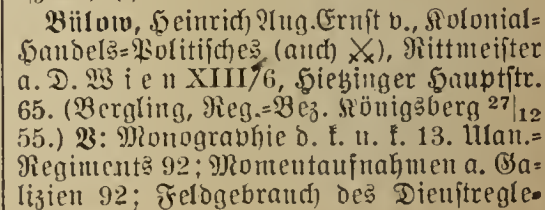 Bülow, Heinrich Aug. Ernst v., Kolonial=
Handels=Politisches (auch ⚔), Rittmeister
a. D. Wien XIII/6, Hietzinger Hauptstr.
65. (Bergling, Reg.=Bez. Königsberg 27|12
55.) V: Monographie d. k. u. k. 13. Ulan.=
Regiments 92; Momentaufnahmen a. Ga=
lizien 92; Feldgebrauch des Dienstregle=